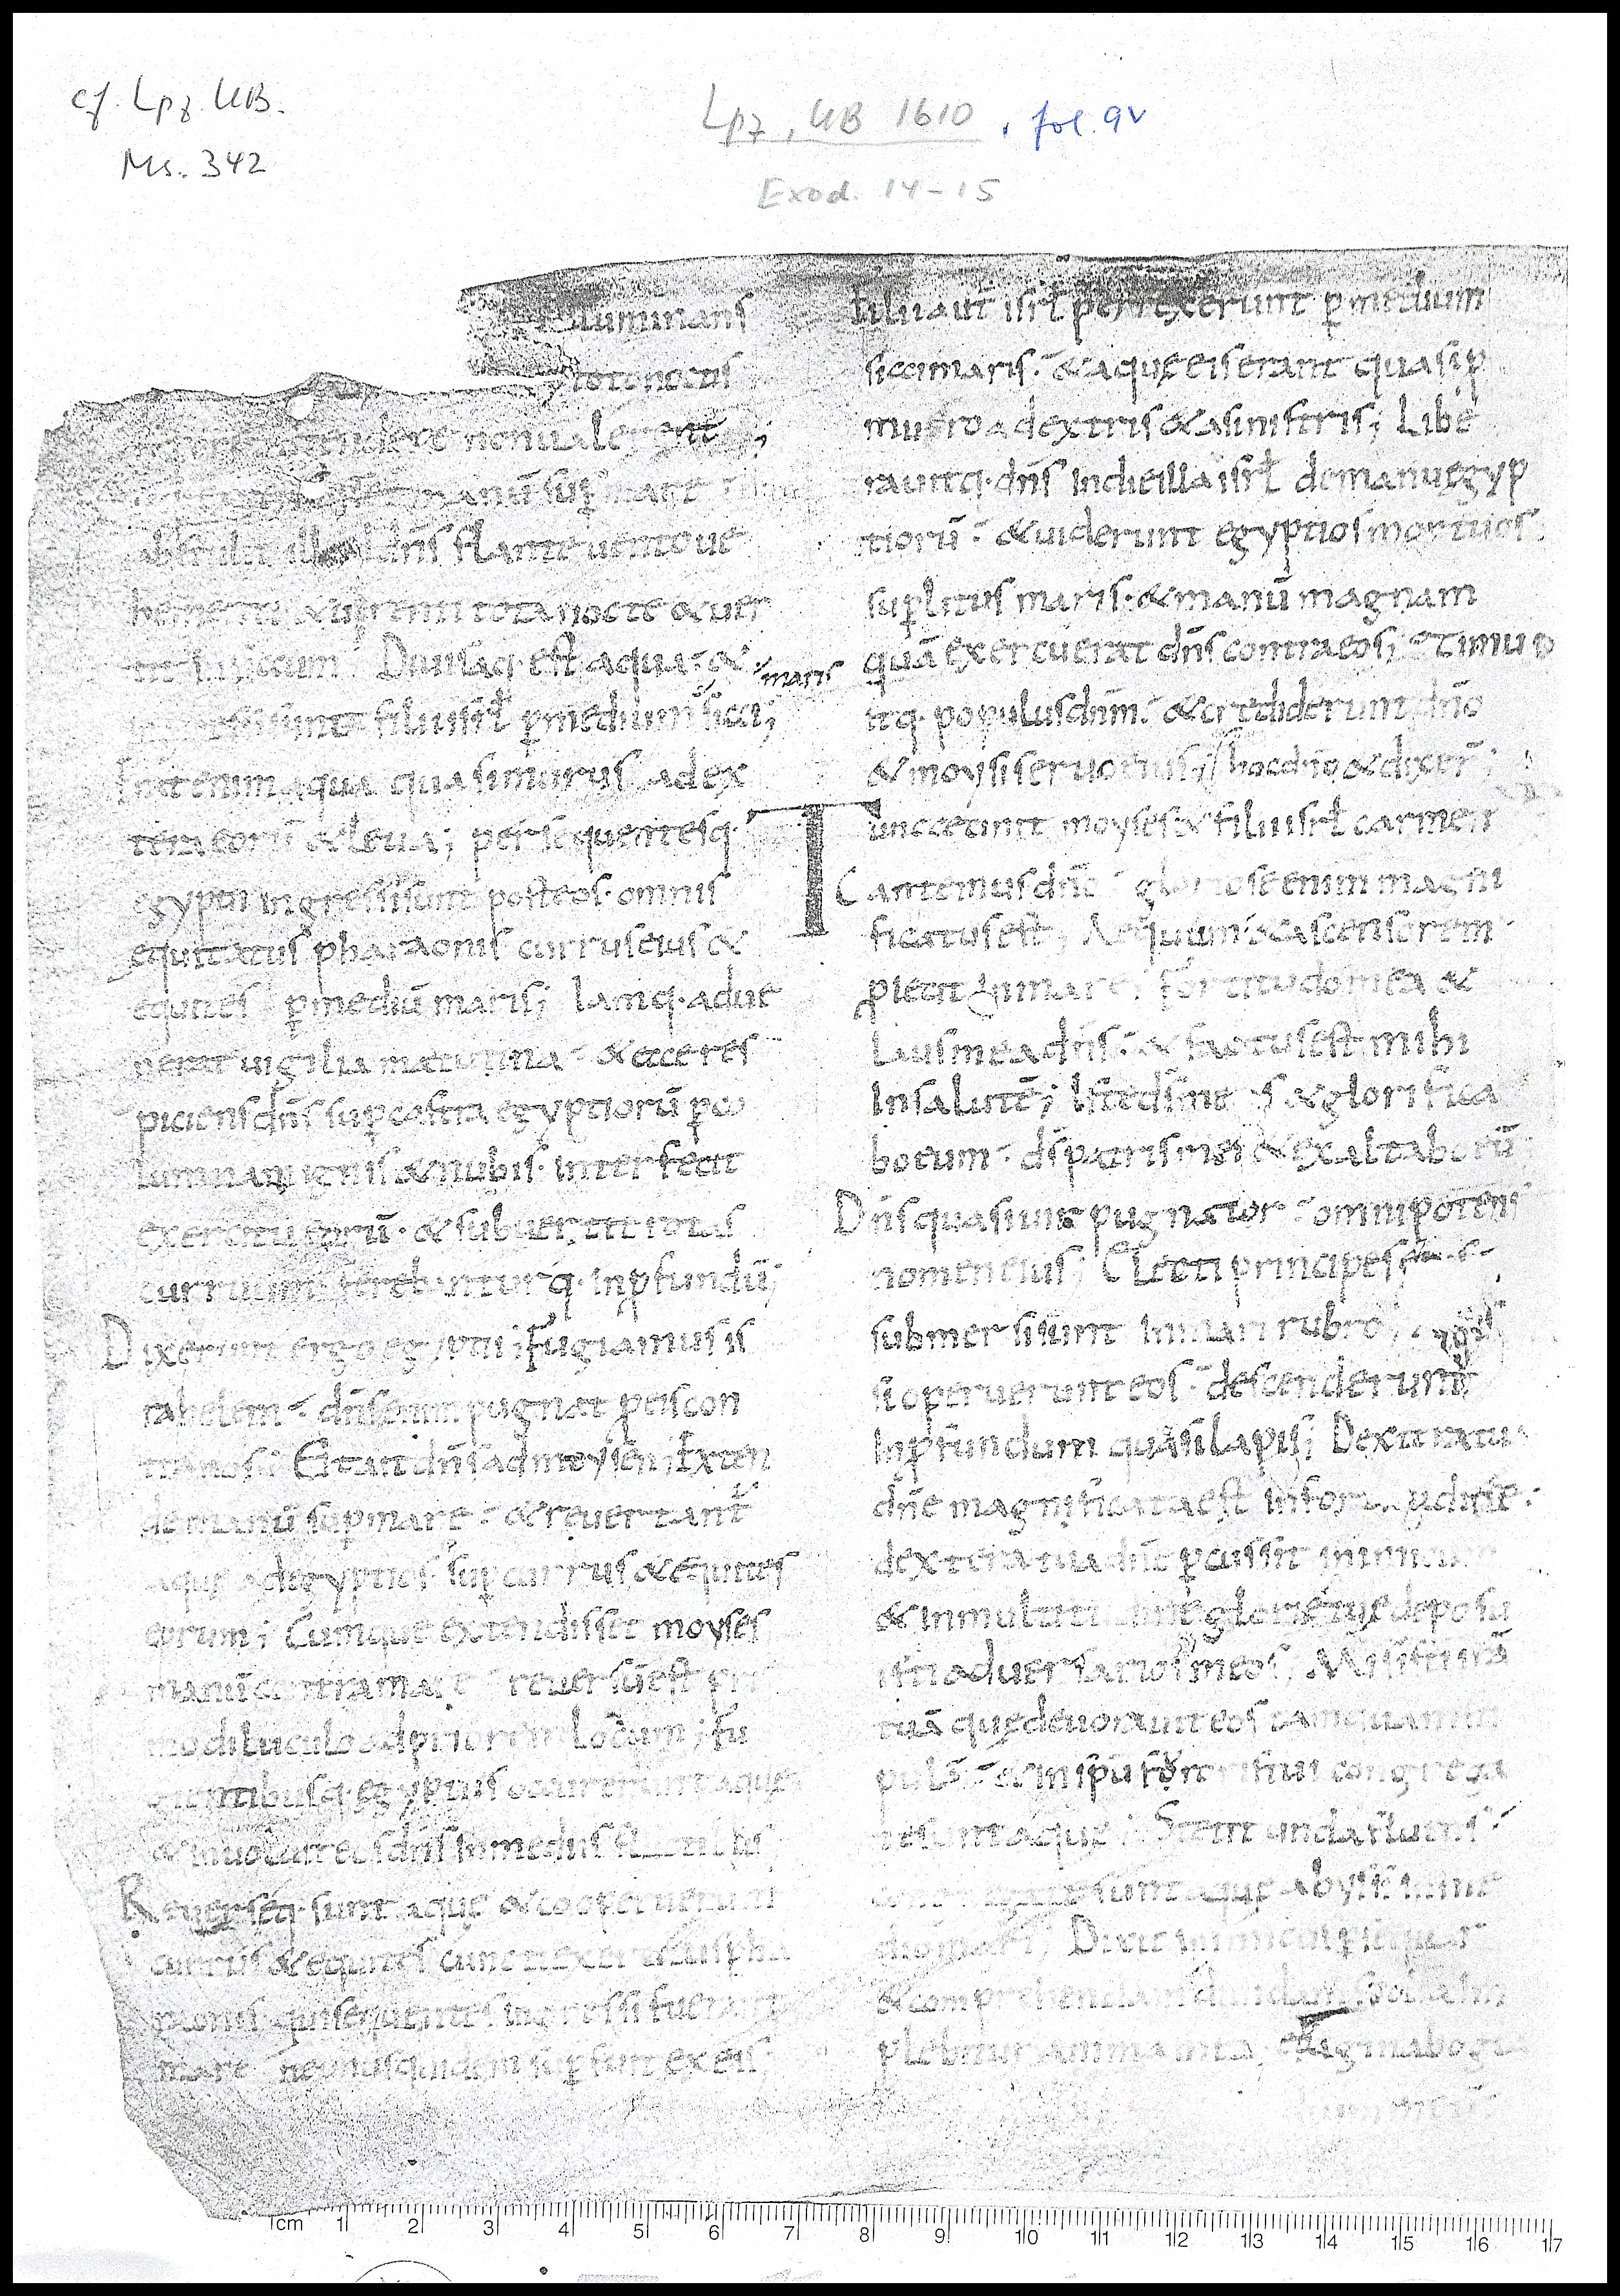 cf. Lpz. UB.
Ms. 342
Lpz, UB 1610, fol. 9v
Exod. 14-15
luminans
totonoctis
nonualerent;
manū sup̱ mare
abstulit illud dn̄s flante uento ue
hementi & urenti tota nocte & uer
tit in siccum. Diuisaq· est aqua· &
maris
sunt filii isrł p̱ medium sicci;
Erat enim aqua quasi murus adex
tera eorū & leua; persequentesq·
egyptii ingressi sunt post eos· omnis
equitatus pharaonis currus eius &
equites p̱ mediū maris; Iamq· adue
nerat uigilia matutina· & ecce res
piciens dn̄s sup̱ castra egyptiorū p̱ co
lumnam ignis & nubis· interfecit
exercitū eorū· & subuertit rotas
curruum ferebanturq· in p̱fundū;
Dixerunt ergo egyptii; Fugiamus is
rahelem· dn̄s enim pugnat p̱ eis con
tra nos; Et ait dn̄s ad moysen; Exten
de manū sup̱ mare· & reuertant̄
aquę ad egyptios· sup̱ currus & equites
eorum; Cumque extendisset moyses
manū contra mare reuersū est pri
mo diluculo ad priorem locum; fu
gientibusq· egyptiis occurrerunt aquę
& inuoluit eos dn̄s in mediis fluctibus
Reuersęq· sunt aquę & cooperuerunt
currus & equites cuncti exercitus pha
raonis qui sequentes ingressi fuerant
mare nec unus quidem sup̱ fuit ex eis;
Filii aut̄ isrł perrexerunt p̱ medium
sicci maris· & aquę eis erant quasi p̱
muro a dextris & a sinistris; Libe
rauitq· dn̄s in die illa isrł de manu egyp
tiorū· & uiderunt egyptios mortuos
sup̱ litus maris· & manū magnam
quā exercuerat dn̄s contra eos; Timu
itq· populus dn̄m· & crediderunt dn̄o
& moysi seruo eius; hoc dn̄o & dixer̄
Tunc cecinit moyses & filii isrł carmen
Cantemus dn̄o gloriose enim magni
ficatus est; Aequum & ascensorem
piecit in mare; Fortitudo mea &
laus mea dn̄s· & factus est mihi
In salutē; Iste ds̄ meus & glorifica
bo eum· ds̄ patris mei & exaltabo eū
Dn̄s quasi uir pugnator· omnipotens
nomen eius; Electi principes
submersi sunt in mari rubro;
si operuerunt eos· descenderunt
In p̱fundum quasi lapis; Dextera tua
dn̄e magnificata est in fortitudine·
dextera tua dn̄e p̱cussit inimicum
& in multitudine glorię tuę deposu
isti aduersarios meos; Misisti irā
tuā quę deuorauit eos tamquam sti
pulā· & in sp̄u furoris tui congrega
te sunt aquę; Stetit unda fluens·
congregatę sunt aquę abyssi in me
dio mari; Dixit inimicus persequar
& comprehendam diuidam spolia im
plebitur anima mea euaginabo gla